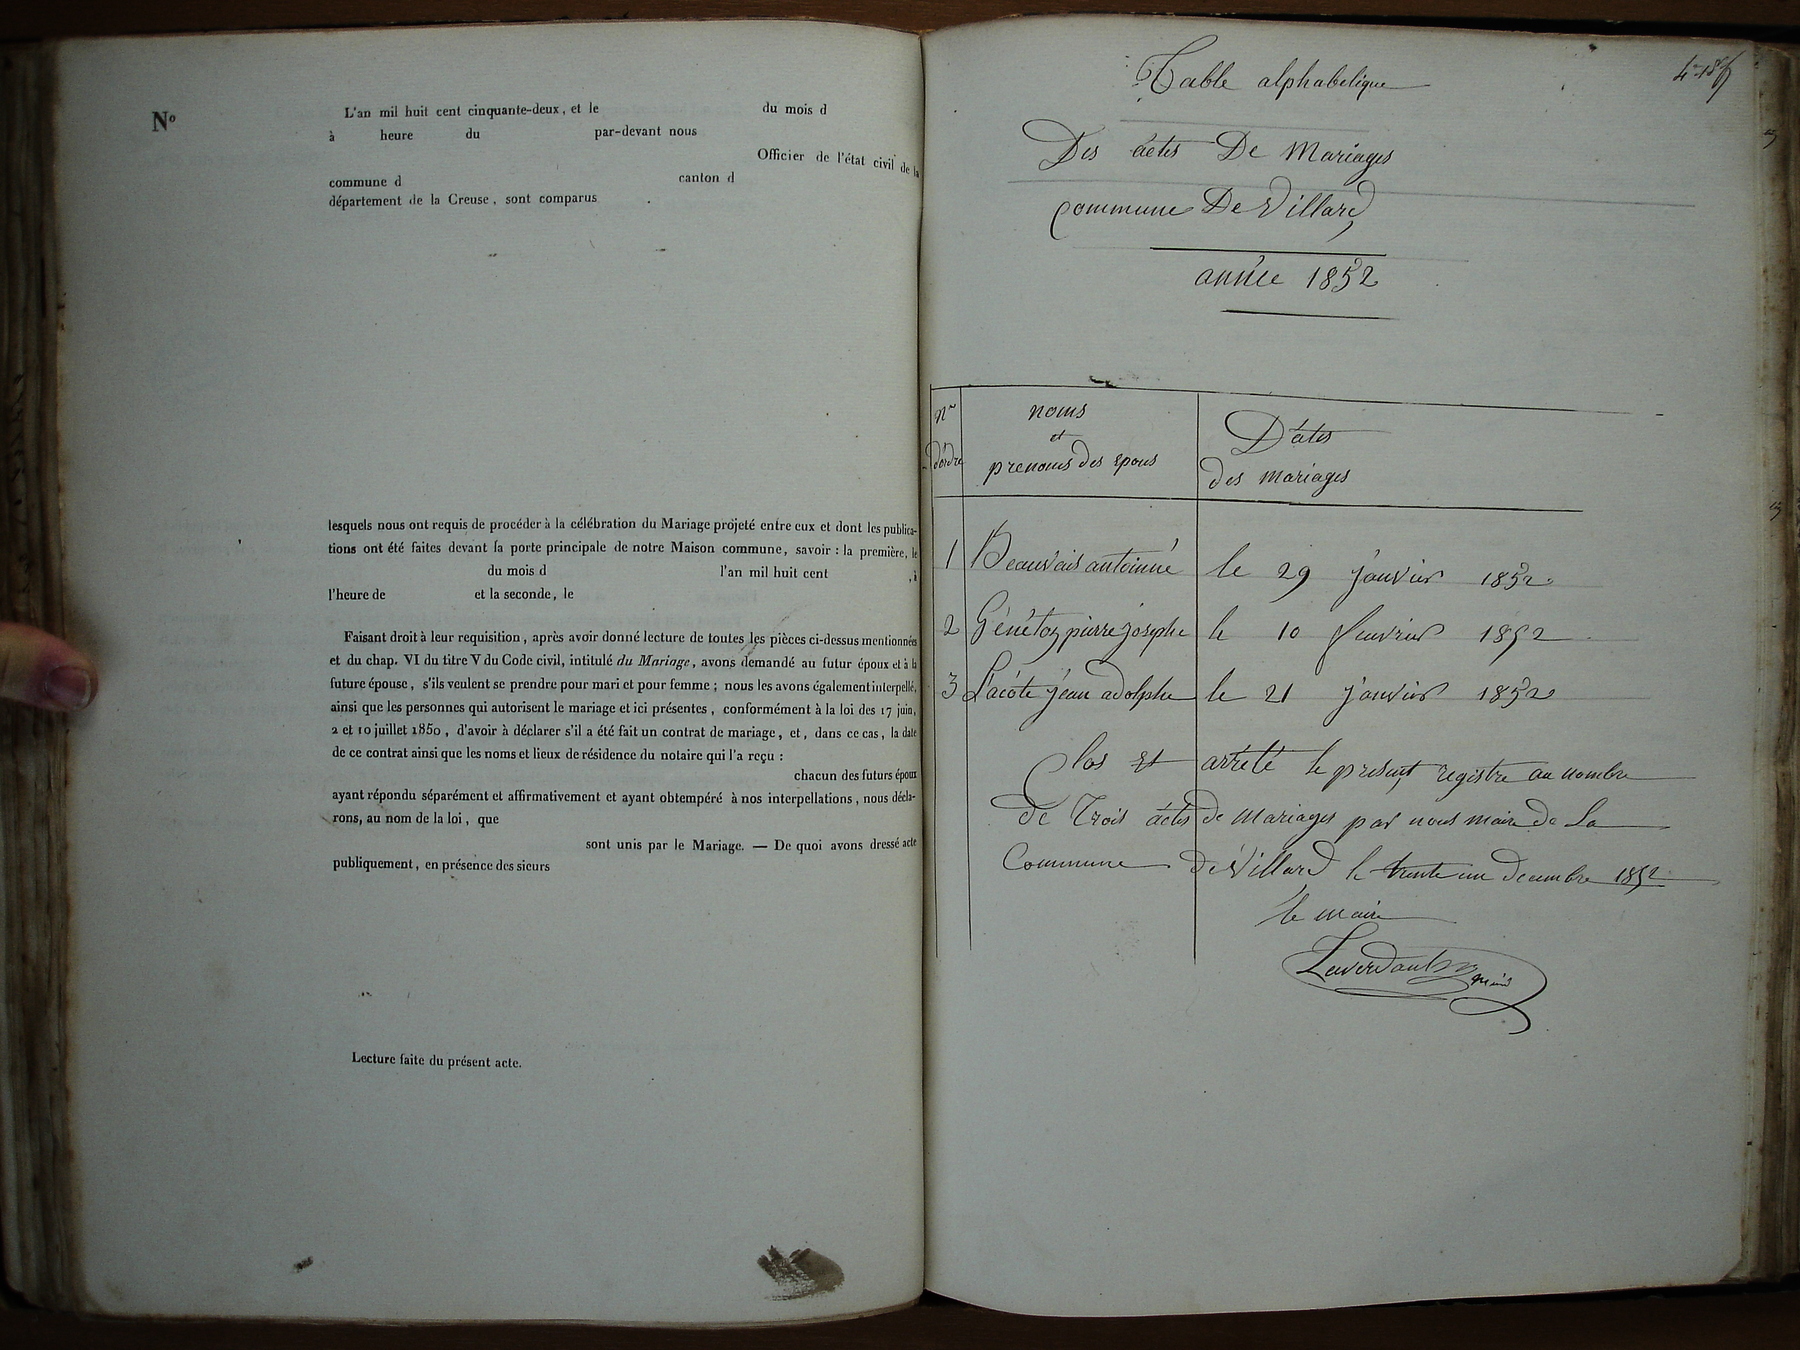 N°
L'an mil huit cent cinquante-deux, et le du mois d
à heure du par-devant nous
Officier de l'état civil de la
commune d canton d
département de la Creuse, sont comparus
lesquels nous ont requis de procéder à la célébration du Mariage projeté entre eux et dont les publica-
tions ont été faites devant la porte principale de notre Maison commune, savoir : la première, le
du mois d l'an mil huit cent , à
l'heure de et la seconde, le
Faisant droit à leur requisition, après avoir donné lecture de toutes les pièces ci-dessus mentionnées
et du chap. VI du titre V du Code civil, intitulé du Mariage, avons demandé au futur époux et à la
future épouse, s'ils veulent se prendre pour mari et pour femme ; nous les avons également interpellé,
ainsi que les personnes qui autorisent le mariage et ici présentes, conformément à la loi des 17 juin,
2 et 10 juillet 1850, d'avoir à déclarer s'il a été fait un contrat de mariage, et, dans ce cas, la date
de ce contrat ainsi que les noms et lieux de résidence du notaire qui l'a reçu :
chacun des futurs époux
ayant répondu séparément et affirmativement et ayant obtempéré à nos interpellations, nous décla-
rons, au nom de la loi, que
sont unis par le Mariage. — De quoi avons dressé acte
publiquement, en présence des sieurs
Lecture faite du présent acte.
Table alphabetique
Des actes De Mariages
commune De Villard
année 1852
n° noms Dates
et
d'ordre prenoms des epous des mariages
1 Beauvais antoinne le 29 janvier 1852
2 Géneton pierre joseph le 10 fevrier 1852
3 Lacôte jean adolphe le 21 janvier 1852
Clos et arrêté le present registre au nombre
de Trois actes de mariages par nous maire de La
Commune de Villard le trente un decembre 1852
le maire
Laverdant